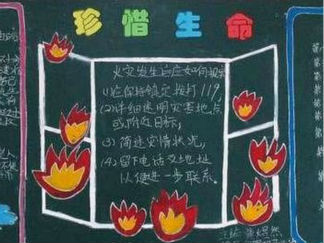 珍惜生命
火灾发生自应如何报警
(1)在保持镇定拨打119.
(2)详细述明灾害地点
或附近目标,
(3)简述灾情状况,
(4)留下电话及地址
以便进一步联系.